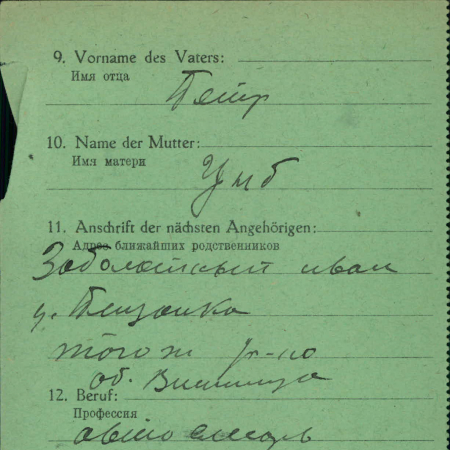 9. Vorname des Vaters:
Имя отца
Петр
10. Name der Mutter:
Имя матери
11. Anschrift der nächsten Angehörigen:
Адрес ближайших родственников
Заболотный иван
того ж р-но
об. Винница
12. Beruf:
Профессия
авто слесарь